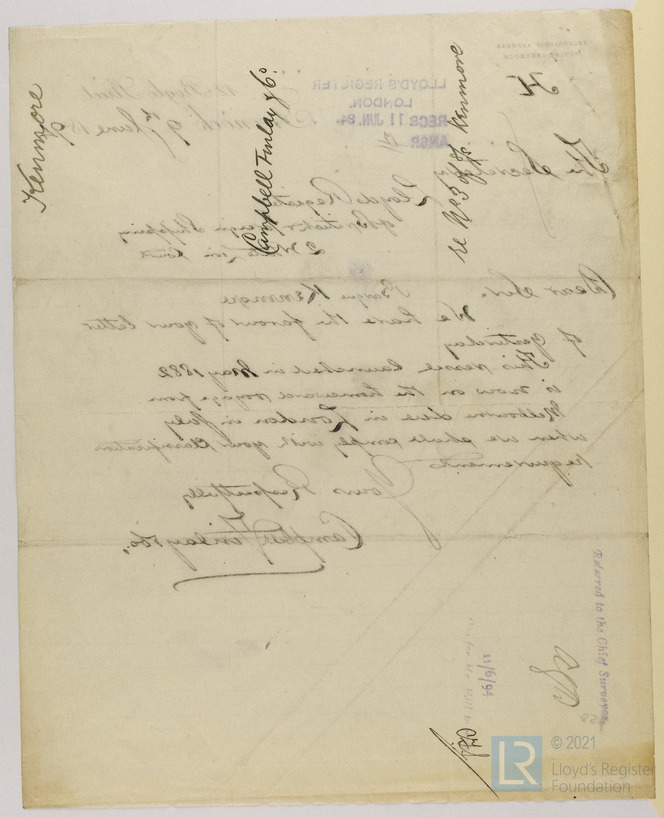 Kenmore
Campbell Finlay & Co
re No 3 of Kenmore
LLOYD'S REGISTER
LONDON.
RECD 11 JUN. 94.
ANSR
The Secretary
Lloyds Register
of British & Foreign Shipping
2 White Lion Court
Dear Sir.
Barque Kenmore
We have the favour of your letter
of yesterday
This vessel launched in May 1882
is now on the homeward voyage from
Melbourne due in London in July
when we shall comply with your classification
requirements
Yours Respectfully
Campbell Finlay & Co,
Referred to the Chief Surveyor
11/6/94
LR
© 2021
Lloyd's Register
Foundation